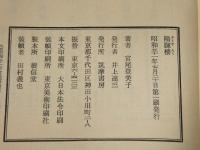 陽暉楼
昭和五十一年七月三十日第二刷発行
著者 宮尾登美子
発行者 井上達三
発行所 筑摩書房
東京都千代田区神田小川町二ノ八
振替 東京六-四一二三
本文印刷 大日本法令印刷
装幀印刷 東京美術印刷社
製本所 積信堂
装幀者 田村義也